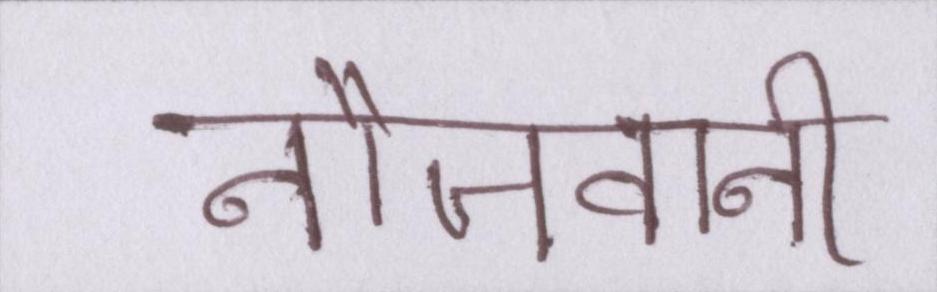 नौजवानी